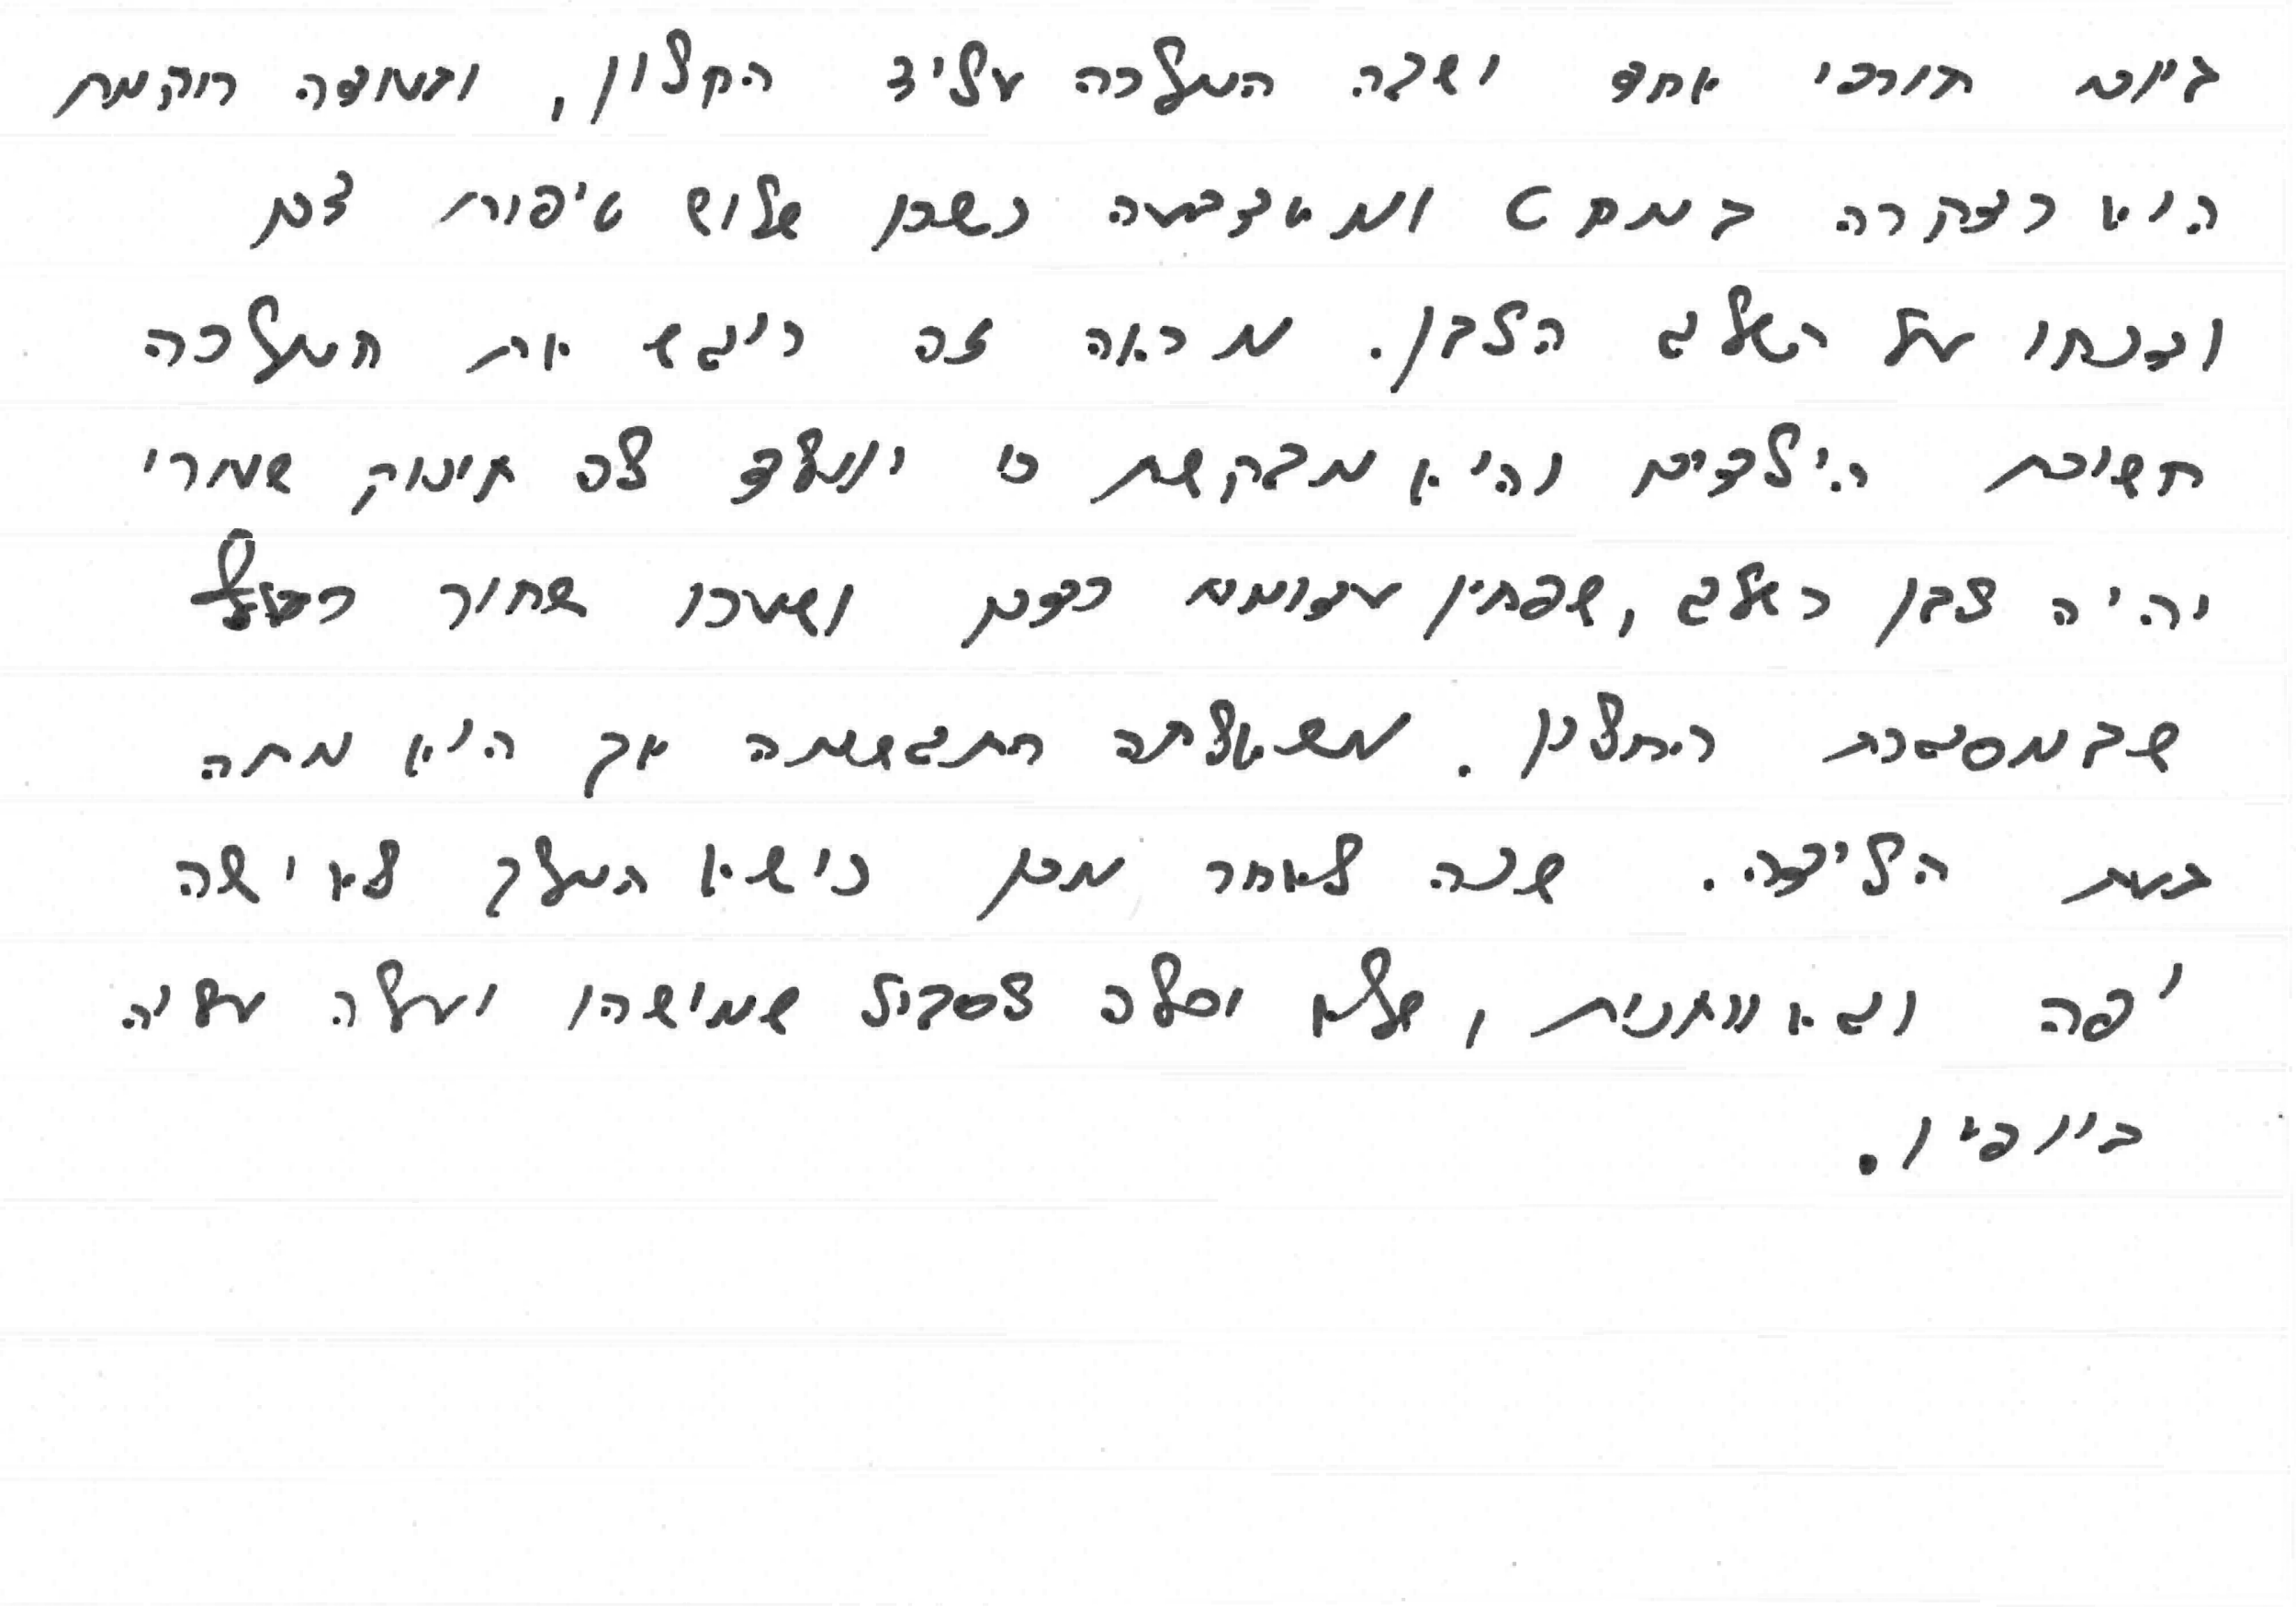 ביום חורפי אחד ישבה המלכה על־יד החלון, ובעודה רוקמת
היא נדקרה במחט ומאצבעה נטפו שלוש טיפות דם
וצנחו על השלג הלבן. מראה זה ריגש את המלכה
חשוכת הילדים והיא מבקשת כי ייוולד לה תינוק שעורו
יהיה לבן כשלג, שפתיו אדומות כדם ושערו שחור כעץ
שבמסגרת החלון. משאלתה התגשמה אך היא מתה
בעת הלידה. שנה לאחר מכן נישא המלך לאישה
יפה וגאוותנית, שלא יכלה לסבול שמישהו יעלה עליה
ביופיו.